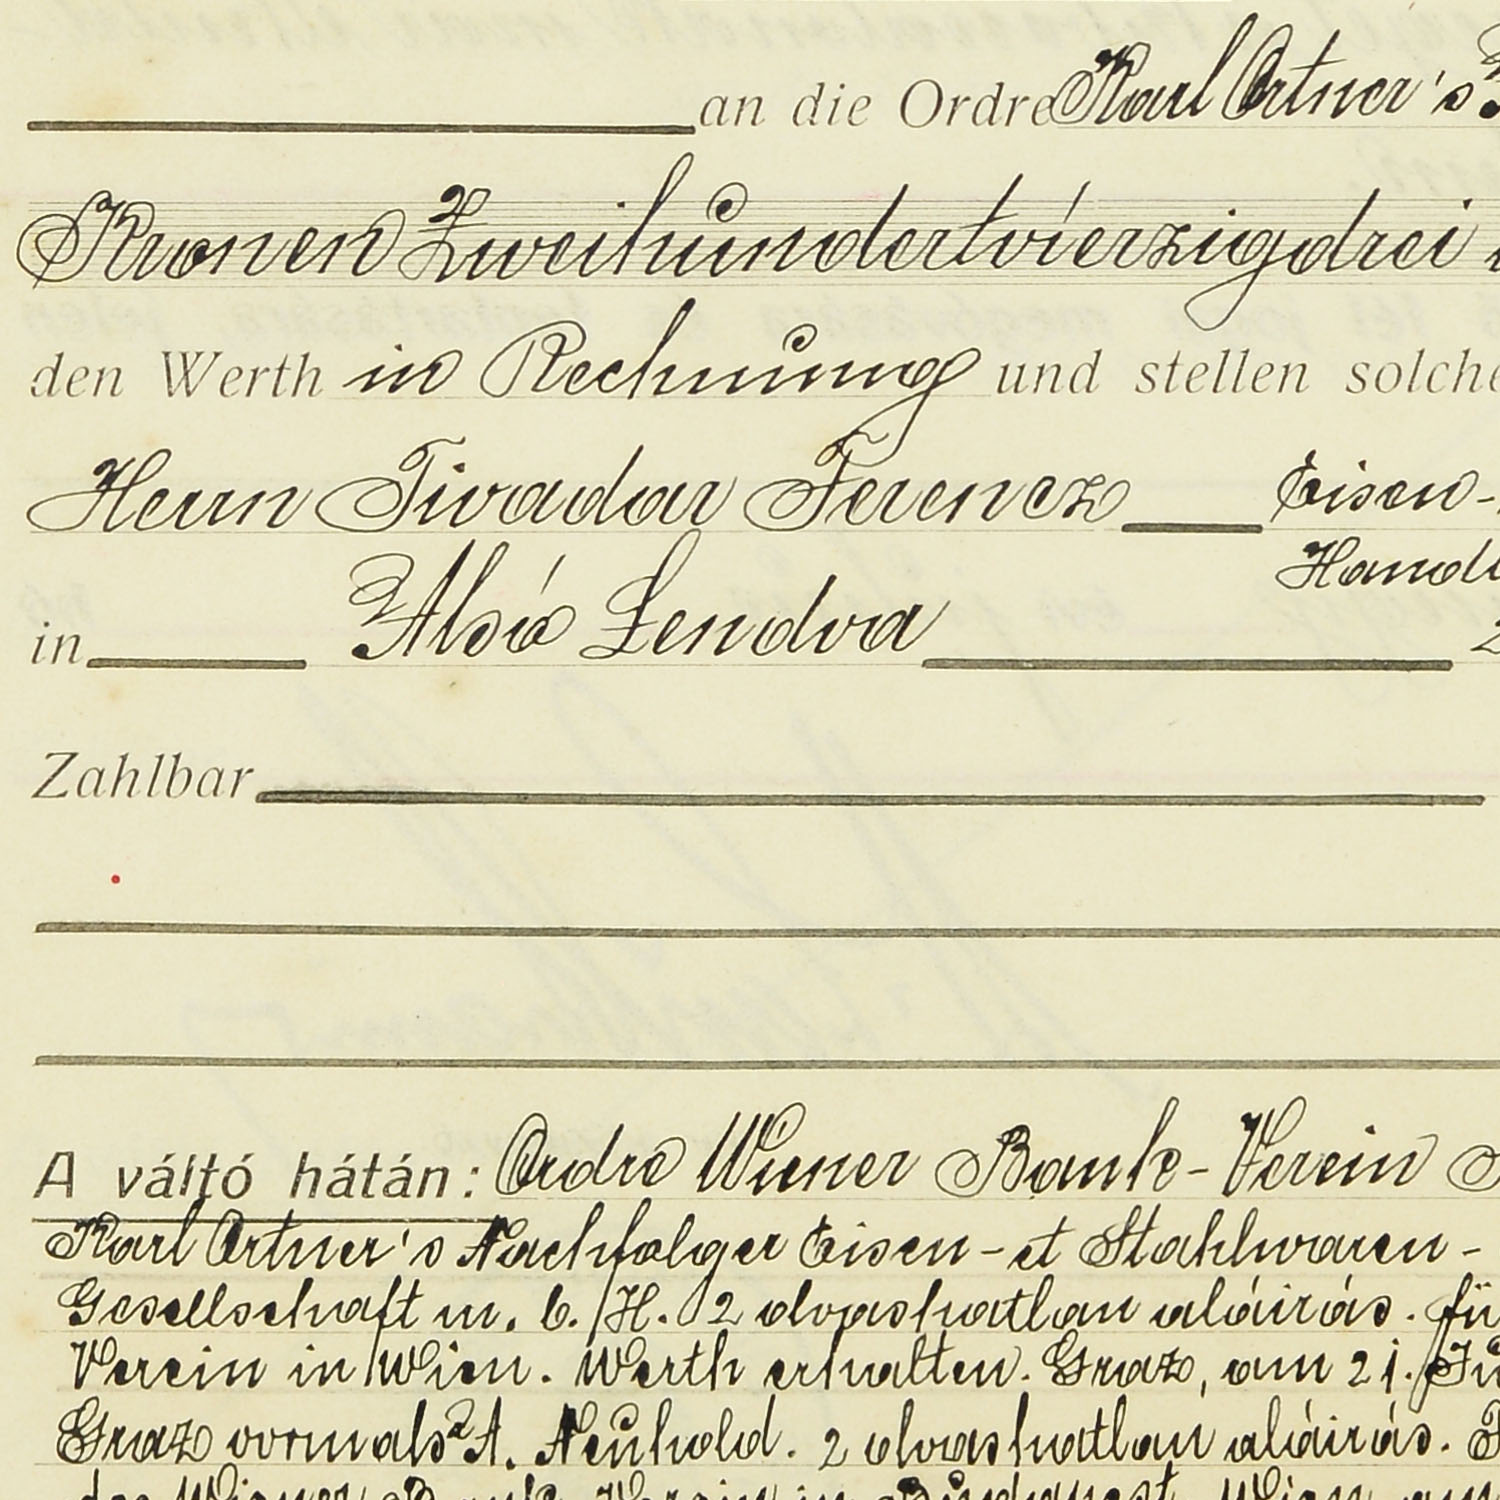 an die Ordre Karl Ortner's
Kronen Zweihundertvierzigdrei
den Werth in Rechnung und stellen solche
Herrn Tivadar Ferencz Eisen-
Handl
in Alsó Lendva
Zahlbar
A váltó hátán: Ordre Wiener Bank-Verein
Karl Ortner's Nachfolger Eisen- et Stahlwaren-
Gesellschaft m. b. H. 2 olvashatlan aláirás. fü
Verein in Wien. Werth erhalten. Graz, am 21. Ju
Graz vormals A. Neuhold. 2 olvashatlan aláirás.
des Wiener Bank-Verein in Budapest. Wien, am